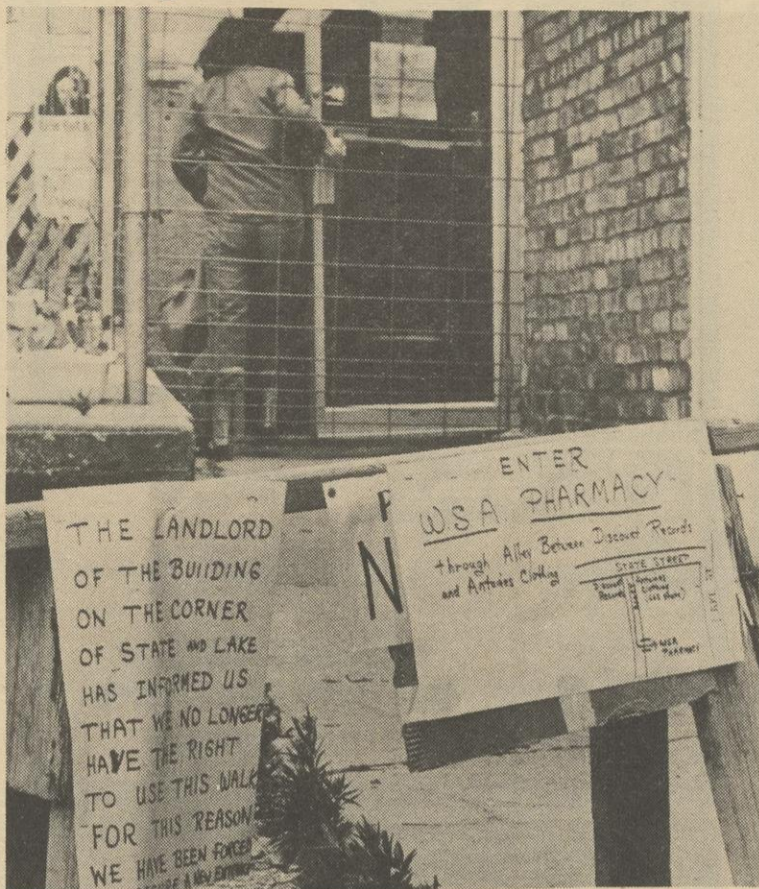 THE LANDLORD
OF THE BUILDING
ON THE CORNER
OF STATE AND LAKE
HAS INFORMED US
THAT WE NO LONGER
HAVE THE RIGHT
TO USE THIS WALK
FOR THIS REASON
WE HAVE BEEN FORCED
A NEW
N
ENTER
W.S.A. PHARMACY
through Alley Between Discount Records
and Antoines Clothing
STATE STREET
Discount
Records
Clothing
PHARMACY